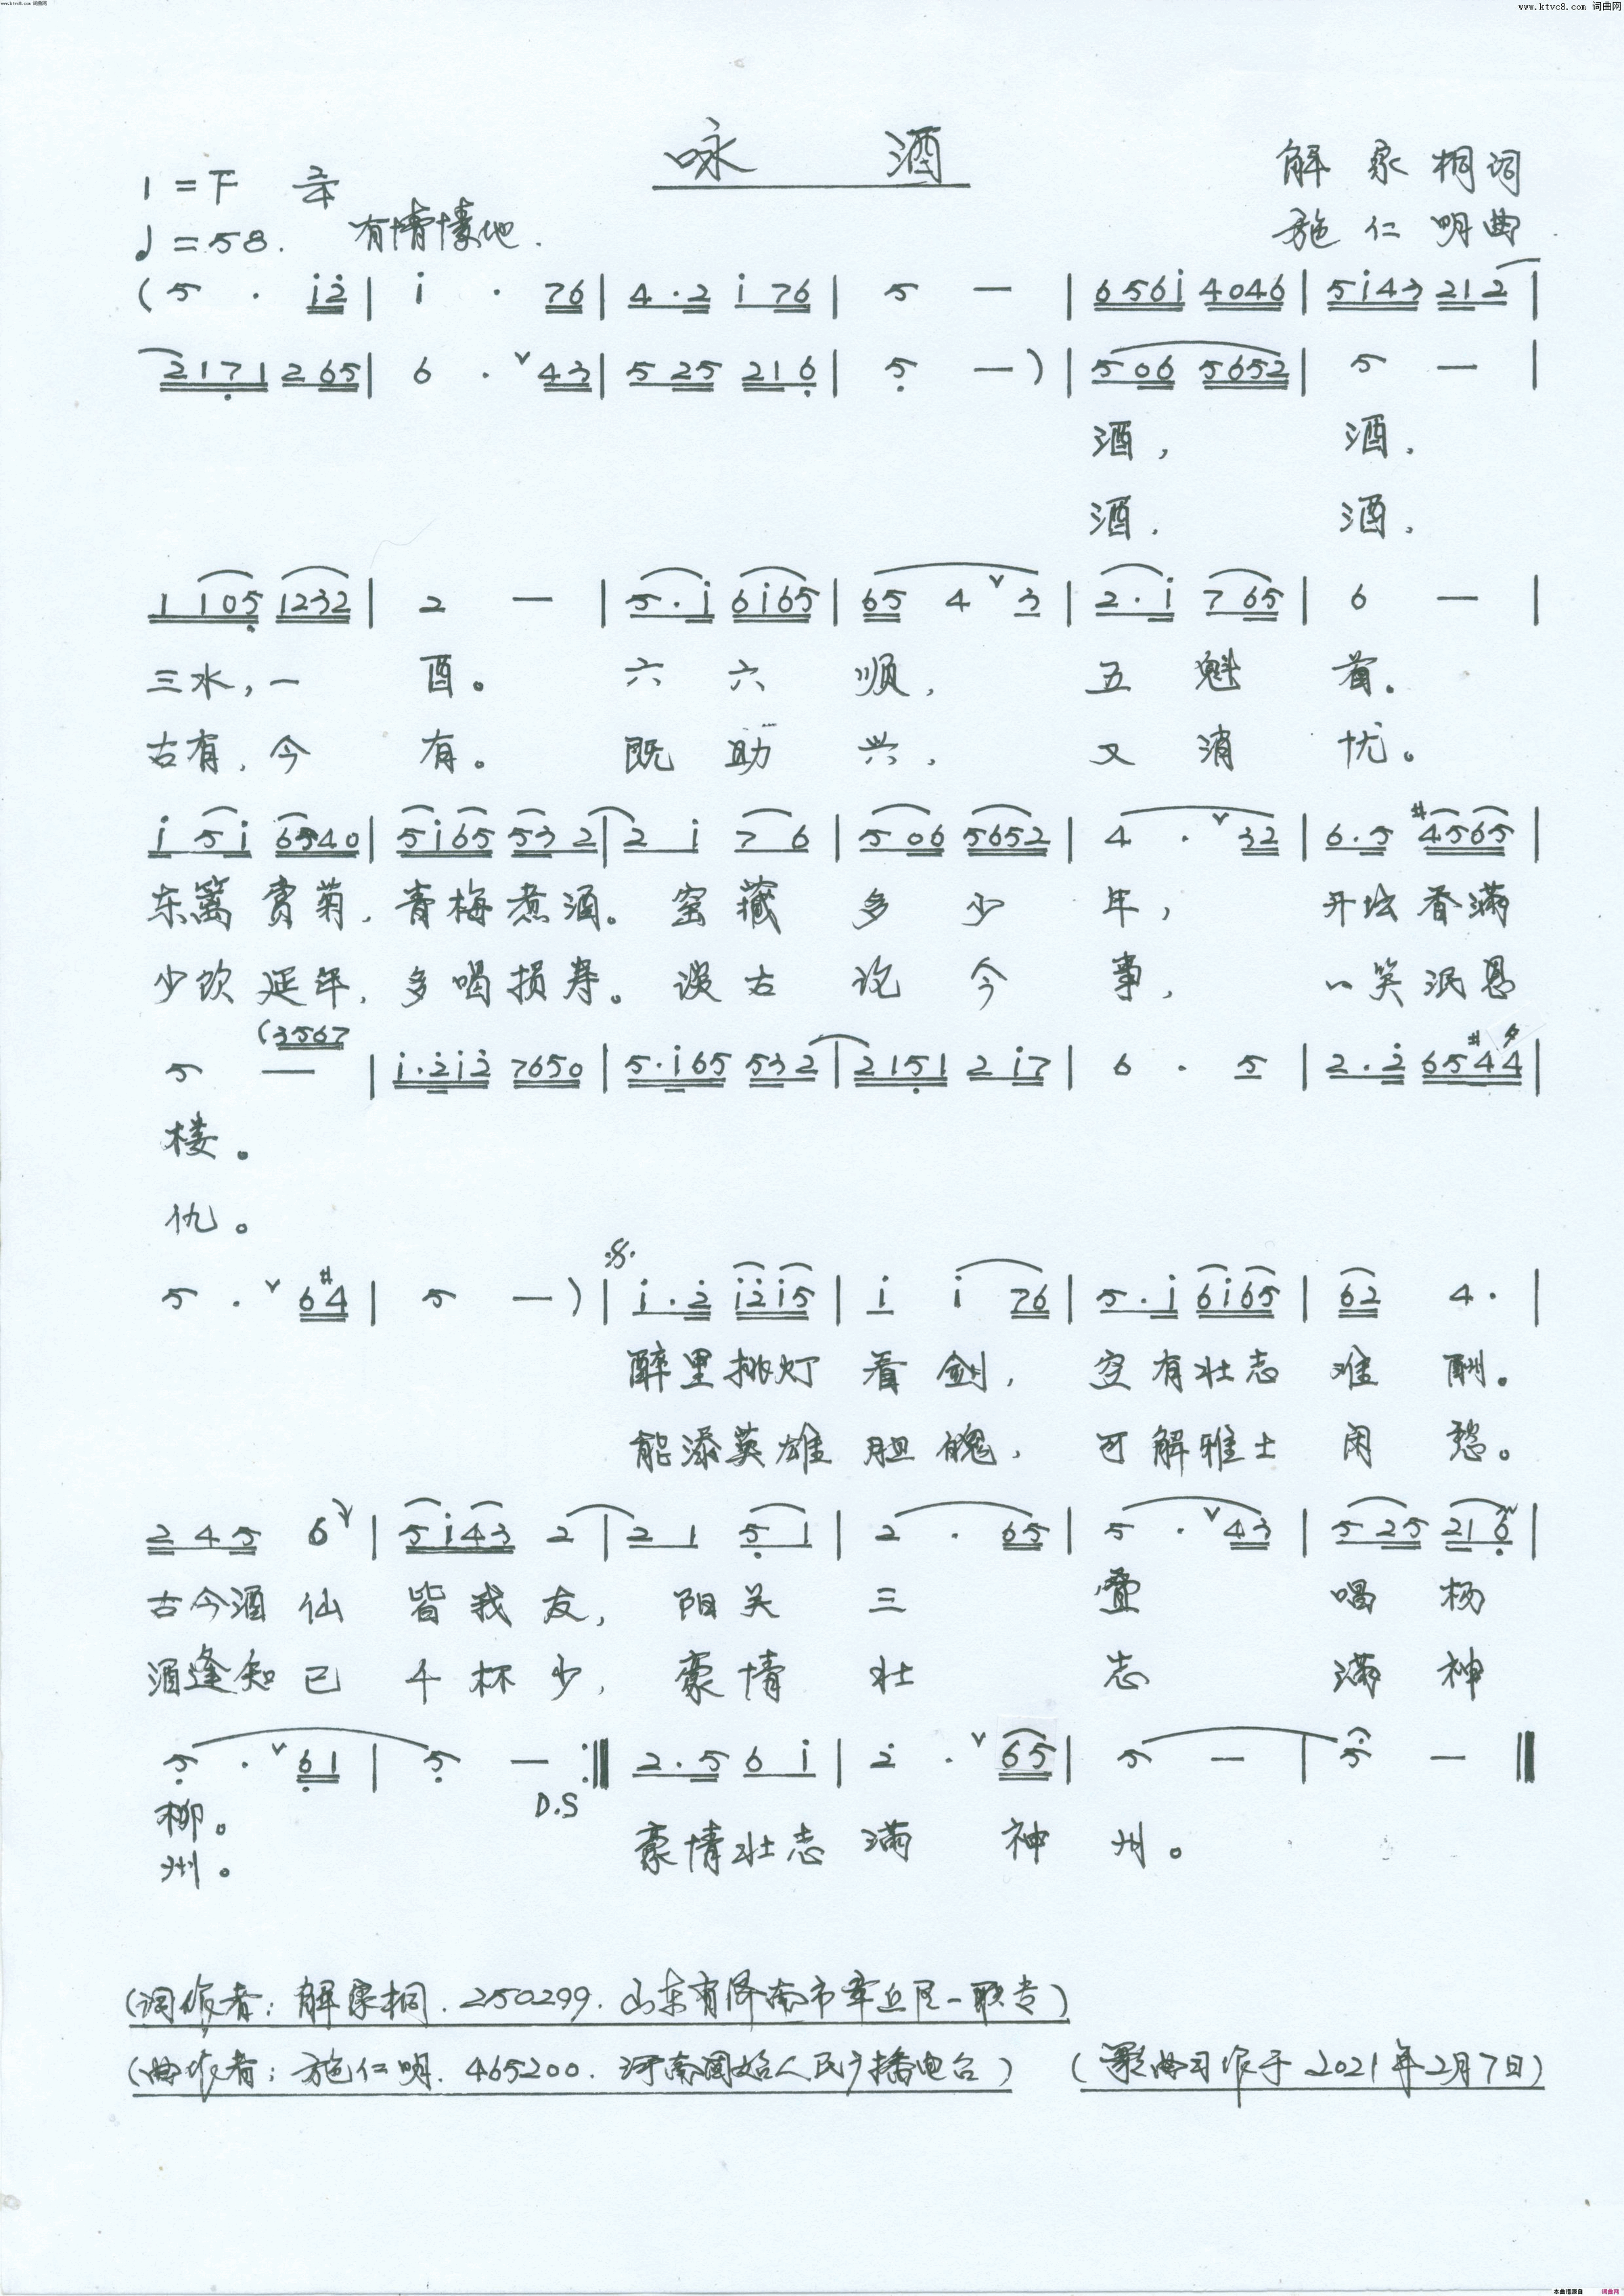 www.ktvc8.com 词曲网
www.ktvc8.com 词曲网
咏 酒
1=F 2/4
解家桐词
♩=58. 有情愫地.
施仁明曲
(5 · i2 | i · 76 | 4·2 i 76 | 5 — | 656i 4046 | 5i43 212 |
2171 265 | 6 · ∨ 43 | 5 25 216 | 5 — ) | 506 5652 | 5 — |
酒, 酒.
酒. 酒.
1 105 1232 | 2 — | 5·i 6i65 | 65 4 ∨ 3 | 2·i 7 65 | 6 — |
三水,一 酉。 六 六 顺, 五 魁 首。
古有,今 有。 既 助 兴, 又 消 忧。
i 5i 6540 | 5i65 53 2 | 2 i 7 6 | 506 5652 | 4 · ∨ 32 | 6·5 #4565 |
东篱赏菊,青梅煮酒。窖藏多少年, 开坛香满
少饮延年,多喝损寿。谈古论今事, 一笑泯恩
(3567
5 — | i·2i2 7650 | 5·i65 532 | 2151 2 i7 | 6 · 5 | 2·2 65#4♮4 |
楼。
仇。
5 · ∨ 6#4 | 5 — ) | i·2 i2i5 | i i 76 | 5·i 6i65 | 62 4· |
醉里挑灯看剑, 空有壮志难酬。
能添英雄胆魄, 可解雅士闲愁。
2 4 5 6 ∨ | 5i43 2 | 2 1 5 1 | 2 · 65 | 5 · ∨ 43 | 5 25 216 |
古今酒仙皆我友, 阳关三叠唱杨
酒逢知己千杯少, 豪情壮志满神
5 · ∨ 61 | 5 — :‖ 2·5 6 i | 2 · ∨ 65 | 5 — | 5 — ‖
D.S
柳。
豪情壮志满神州。
州。
(词作者: 解家桐. 250299. 山东省济南市章丘区一职专)
(曲作者: 施仁明. 465200. 河南固始人民广播电台) (歌曲习作于2021年2月7日)
本曲谱源自 词曲网